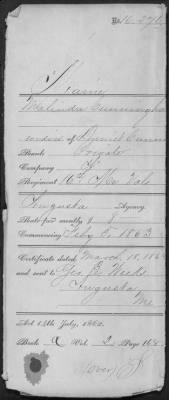 No 16.271
Maine
Malinda Cunningham
widow of Daniel Cunn
Rank Private
Company F
Regiment 16th Me Vols
Augusta Agency
Rate per month $ 8
Commencing Feby 5, 1863
Certificate dated March 18, 186
and sent to Geo. E. Weeks
Augusta
Me
Act 14th July, 1862.
Book A Vol. 2 Page 168